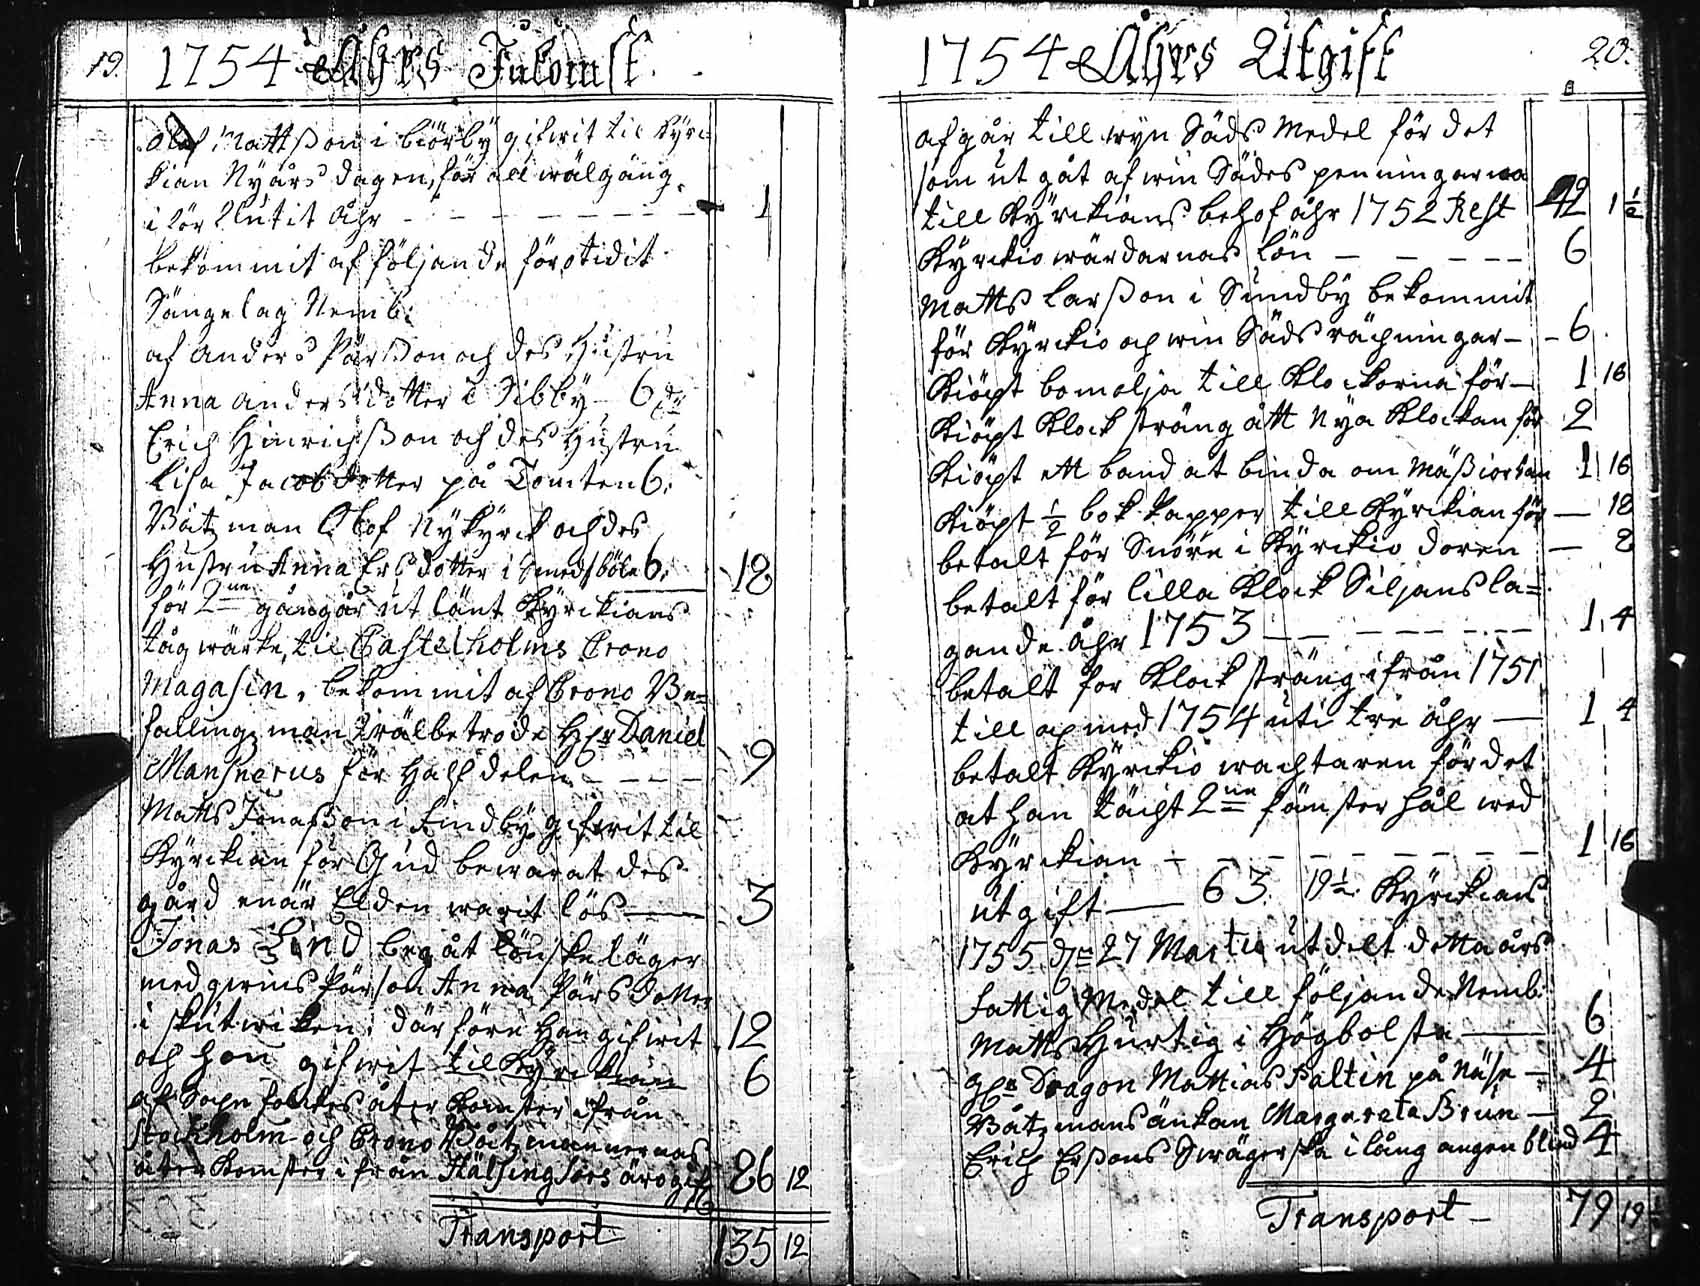 19. 1754 Åhrs Inkomst
Olof Mattsson i biörby gifwit til Kyrc
kian Nyårs dagen, för all wälgång
i lör slutit åhr - - - - - - 1
bekommit af följande förotidit
Sängelag Nemb:
af Anders Pärsson och des Hustru
Anna Andersdotter i Sibby - 6 dr
Erich Hinrichsson och des Hustru
Lisa Jacobsdotter på Tomten 6.
Båtzman Olof Nykyrck och des
Hustru Anna Ersdotter i Smedsböle 6. 18
för 2ne gångor utlånt Kyrckians
tågwärke, til Castelholms Crono
Magasin, bekommit af Crono Be=
fallingzman Wälbetrode Hr Daniel
Mansnerus för halfdelen - - - - 9
Matts Jonasson i Findby gifwit til
Kyrckian för Gud bewarat des
gård enär Elden warit lös — 3
Jonas Lind begåt lönskeläger
med pigan Anna Pärsdotter
i skutwiken, därföre han gifwit 12
och hon gifwit til Kyrckian 6
af Sopnfolckes åter komster ifrån
Stockholm och Crono Båtzmännernas
återkomster ifrån Hälsingfors ärogift 86 12
Transport 135 12
1754 Åhrs Utgift 20.
afgår till wyn Säds Medel för det
som utgåt af win Sädes penningarna
till Kyrckians behof åhr 1752 Rest 42 1 1/2
Kyrckiowärdarnas lön - - - - - 6
Matts Larsson i Sundby bekommit
för Kyrckio och win Säds räckningar - - 6
Kiöpt bomolja till Klockorna för - 1 16
Kiöpt Klocksträng ått Nya Klockan för 2
Kiöpt ett band at binda om Mässiortan 1 16
Kiöpt 1/2 bok Papper till Kyrckian för — 18
betalt för Snöre i Kyrckiodoren — 8
betalt för lilla Klock Siljans la=
gande åhr 1753 - - - - - - 1 4
betalt för Klocksträng ifrån 1751
till och med 1754 uti tre åhr — 1 4
betalt Kyrckiowachtaren för det
at han täckt 2ne fönsterhål wed
Kyrckian - - - - - - - - 1 16
utgift — 63. 19 1/2. Kyrckians
1755 dn 27 Martii utdelt dotta års
fattig Medel till följande Nemb:
Matts Hurtig i Högbolsta — 6
Dragon Mattias Paltin på Näse - 4
Båtzmansänkan Margareta Brun — 2
Erich Erssons Swägerska i långangen blind 4
Transport - 79 19 1/2